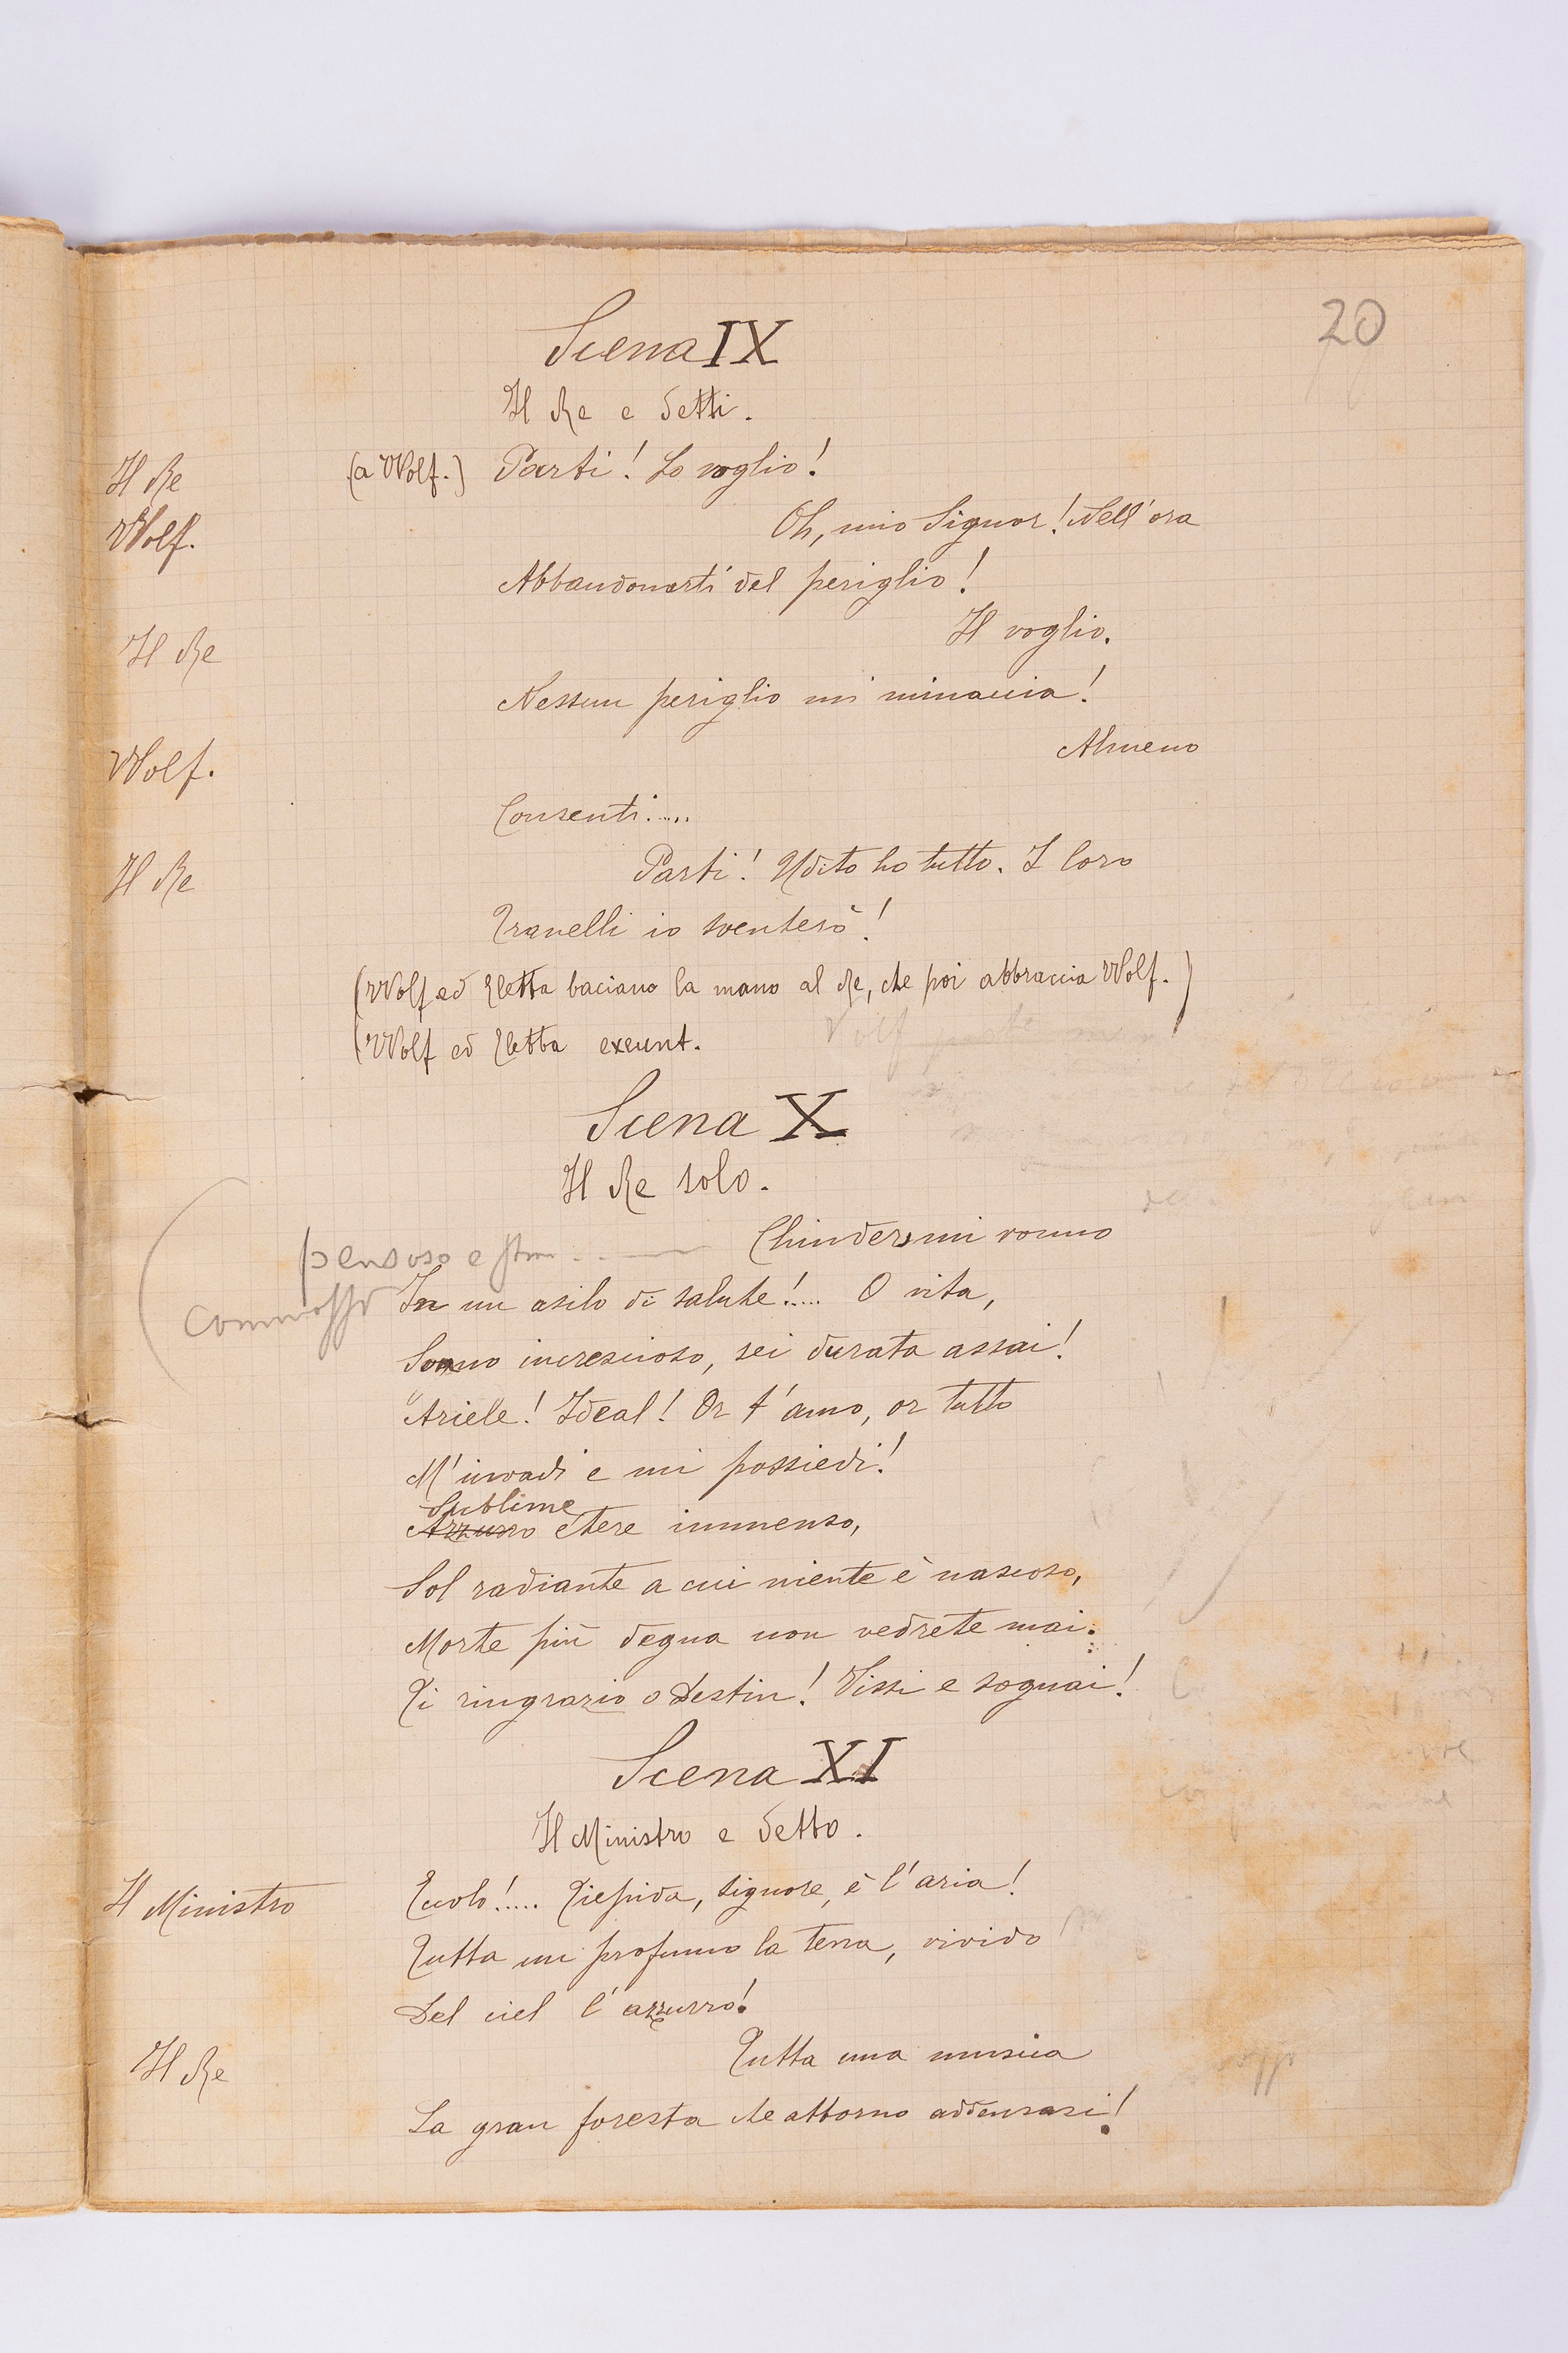 20
Scena IX
Il Re e detti.
Il Re (a Wolf.) Parti! Lo voglio!
Wolf. Oh, mio Signor! Nell'ora
Abbandonarti del periglio!
Il Re Il voglio.
Nessun periglio mi minaccia!
Wolf. Almeno
Consenti.....
Il Re Parti! Udito ho tutto. I loro
Tranelli io sventerò!
(Wolf ed Etta baciano la mano al Re, che poi abbraccia Wolf.)
(Wolf ed Etta exeunt.
Wolf parte
Scena X
Il Re solo.
pensoso e
Chiudermi vonno
commosso
In un asilo di salute!.... O vita,
Sonno increscioso, sei durata assai!
Ariele! Ideal! Or t'amo, or tutto
M'invadi e mi possiedi!
Sublime
Azzurro etere immenso,
Sol radiante a cui niente è nascoso,
Morte più degna non vedrete mai:
Ti ringrazio o Destin! Vissi e sognai!
Scena XI
Il Ministro e detto.
Il Ministro Tuolo!.... Tiepida, signore, è l'aria!
Tutta un profumo la terra, vivido
Del ciel l'azzurro!
Il Re Tutta una musica
La gran foresta che attorno addensasi!